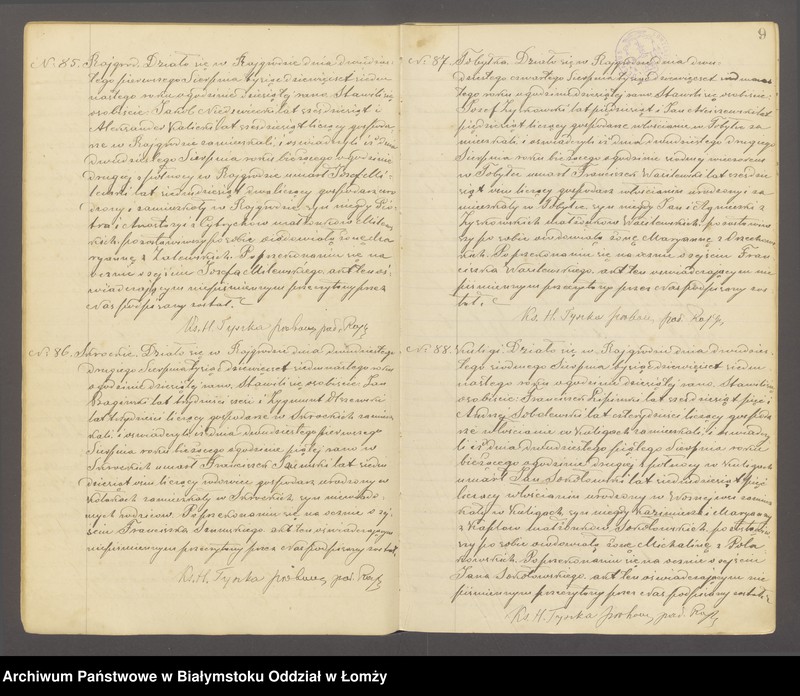 9
N. 85. Rajgród. Działo się w Rajgrodzie dnia dwudzies-
tego pierwszego Sierpnia tysiąc dziewięćset siedm-
nastego roku o godzinie dziesiątej rano. Stawili się
osobiście Jakób Niedźwiecki lat sześćdziesiąt i
Aleksander Kalicki lat sześćdziesiąt liczący gospoda-
rze w Rajgrodzie zamieszkali, i oświadczyli iż dnia
dwudziestego Sierpnia roku bieżącego o godzinie
drugiej z północy w Rajgrodzie umarł Józef Mi-
lewski lat siedmdziesiąt dwa liczący gospodarz uro-
dzony i zamieszkały w Rajgrodzie, syn niegdy Pio-
tra i Anastazyi z Cybryków małżonków Milew-
skich, pozostawiwszy po sobie owdowiałą żonę Ma-
ryannę z Zalewskich. Po przekonaniu się na-
ocznie o zejściu Józefa Milewskiego, akt ten oś-
wiadczającym niepiśmiennym przeczytany przez
Nas podpisany został.
Ks. H. Tyszka probosz. par. Rajg.
N. 86. Skrodzkie. Działo się w Rajgrodzie dnia dwudziestego
drugiego Sierpnia tysiąc dziewięćset siedmnastego roku
o godzinie dziesiątej rano. Stawili się osobiście Jan
Bagiński lat trzydzieści sześć i Zygmunt
lat trzydzieści liczący gospodarze w Skrodzkich zamiesz-
kali, i oświadczyli iż dnia dwudziestego pierwszego
Sierpnia roku bieżącego o godzinie piątej rano w
Skrodzkich umarł Franciszek lat siedm-
dziesiąt ośm liczący wdowiec gospodarz urodzony w
zamieszkały w Skrodzkich, syn niewiado-
mych rodziców. Po przekonaniu się na ocznie o zej-
ściu Franciszka akt ten oświadczającym
niepiśmiennym przeczytany przez Nas podpisany został.
Ks. H. Tyszka probosz. par. Rajg.
N. 87. Tobyłka. Działo się w Rajgrodzie dnia dwu-
dziestego czwartego Sierpnia tysiąc dziewięćset siedmnas-
tego roku o godzinie dziesiątej rano. Stawili się osobiście
Józef Żyskowski lat pięćdziesiąt i Jan lat
pięćdziesiąt liczący gospodarze włościanie w Tobyłce za-
mieszkali i oświadczyli iż dnia dwudziestego drugiego
Sierpnia roku bieżącego o godzinie siódmej wieczorem
w Tobyłce umarł Franciszek Wasilewski lat sześćdzie-
siąt ośm liczący gospodarz włościanin urodzony i za-
mieszkały w Tobyłce, syn niegdy Jana i Agnieszki z
Żyskowskich małżonków Wasilewskich, pozostawiw-
szy po sobie owdowiałą żonę Maryannę z Orzechow-
skich. Po przekonaniu się na ocznie o zejściu Fran-
ciszka Wasilewskiego, akt ten oświadczającym nie-
piśmiennym przeczytany przez Nas podpisany zos-
tał.
Ks. H. Tyszka probosz. par. Rajg.
N. 88. Kuligi. Działo się w Rajgrodzie dnia dwudzies-
tego siódmego Sierpnia tysiąc dziewięćset siedm-
nastego roku o godzinie dziesiątej rano. Stawili się
osobiście Franciszek Lipiński lat sześćdziesiąt pięć i
Andrzej Sobolewski lat czterdzieści liczący gospoda-
rze włościanie w Kuligach zamieszkali, i oświadczy-
li iż dnia dwudziestego piątego Sierpnia roku
bieżącego o godzinie drugiej z północy w Kuligach
umarł Jan Sokołowski lat siedmdziesiąt pięć
liczący włościanin urodzony w Woznejwsi zamiesz-
kały w Kuligach, syn niegdy Kazimierza i Maryanny
z Kapłow małżonków Sokołowskich, pozostawiw-
szy po sobie owdowiałą żonę Michalinę z Pola-
kowskich. Po przekonaniu się na ocznie o zejściu
Jana Sokołowskiego, akt ten oświadczającym nie-
piśmiennym przeczytany przez Nas podpisany został.
Ks. H. Tyszka probosz. par. Rajg.
Archiwum Państwowe w Białymstoku Oddział w Łomży